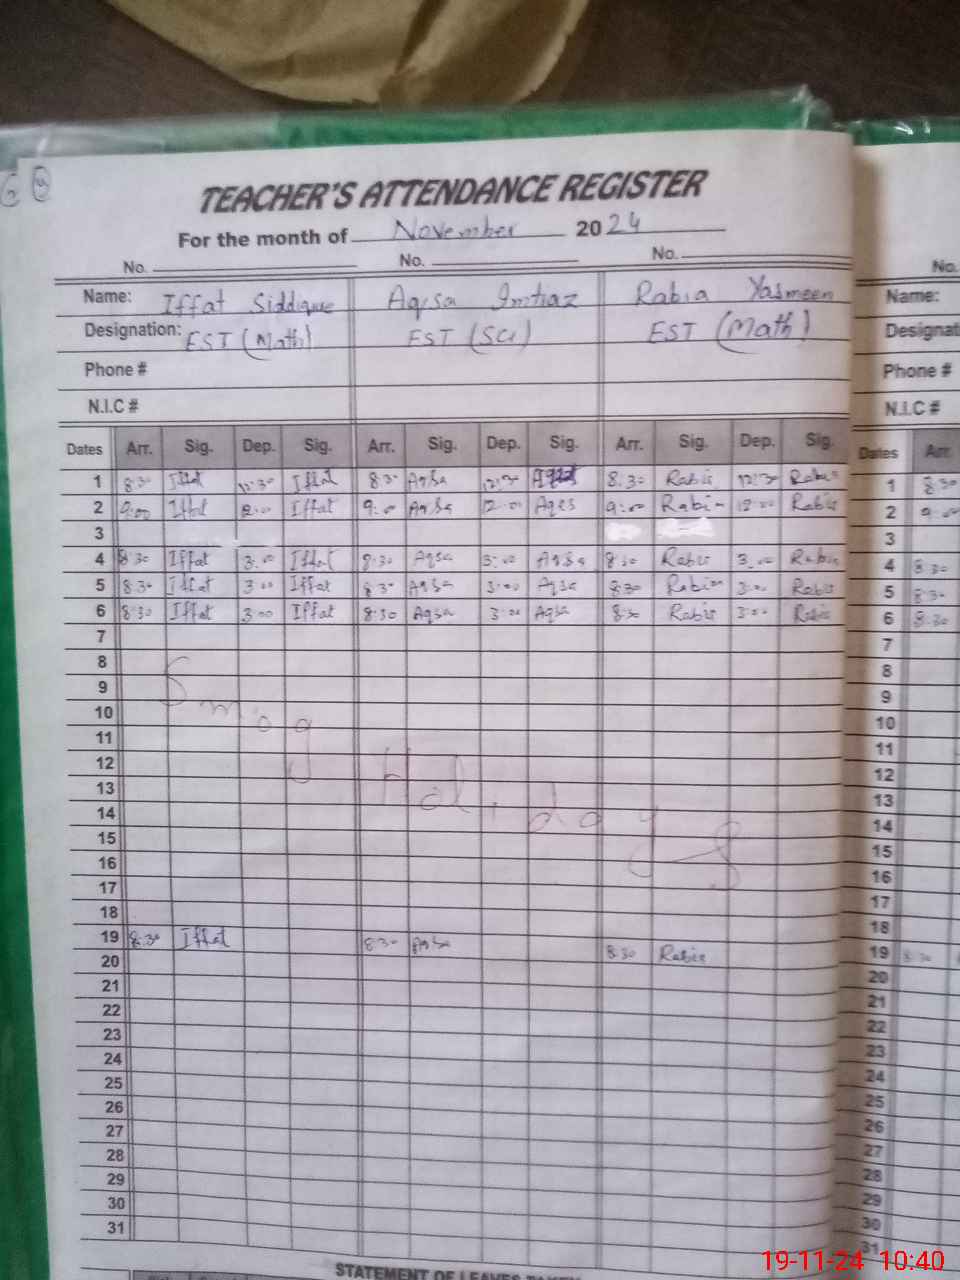 TEACHER'S ATTENDANCE REGISTER
For the month of November 2024
No. No. No.
Name: Iffat Siddique Aqsa Imtiaz Rabia Yasmeen
Designation: EST (Math) EST (Sci) EST (Math)
Phone #
N.I.C #
Dates Arr. Sig. Dep. Sig. Arr. Sig. Dep. Sig. Arr. Sig. Dep. Sig.
1 8:30 Iffat 12:30 Iffat 8:30 Aqsa 12:30 8:30 Rabia 12:30 Rabia
2 9:00 Iffat 12:00 Iffat 9:00 Aqsa 12:00 Aqsa 9:00 Rabia 12:00 Rabia
3
4 8:30 Iffat 3:00 Iffat 8:30 Aqsa 3:00 Aqsa 8:30 Rabia 3:00 Rabia
5 8:30 Iffat 3:00 Iffat 8:30 Aqsa 3:00 Aqsa 8:30 Rabia 3:00 Rabia
6 8:30 Iffat 3:00 Iffat 8:30 Aqsa 3:00 Aqsa 8:30 Rabia 3:00 Rabia
7
8
Smog Holidays
9
10
11
12
13
14
15
16
17
18
19 8:30 Iffat 8:30 Aqsa 8:30 Rabia
20
21
22
23
24
25
26
27
28
29
30
31
STATEMENT OF LEAVES TAKEN
No.
Name:
Designat
Phone #
N.I.C #
Dates Arr.
1 8:30
2 9:00
3
4 8:30
5 8:30
6 8:30
7
8
9
10
11
12
13
14
15
16
17
18
19 8:30
20
21
22
23
24
25
26
27
28
29
30
31
19-11-24 10:40